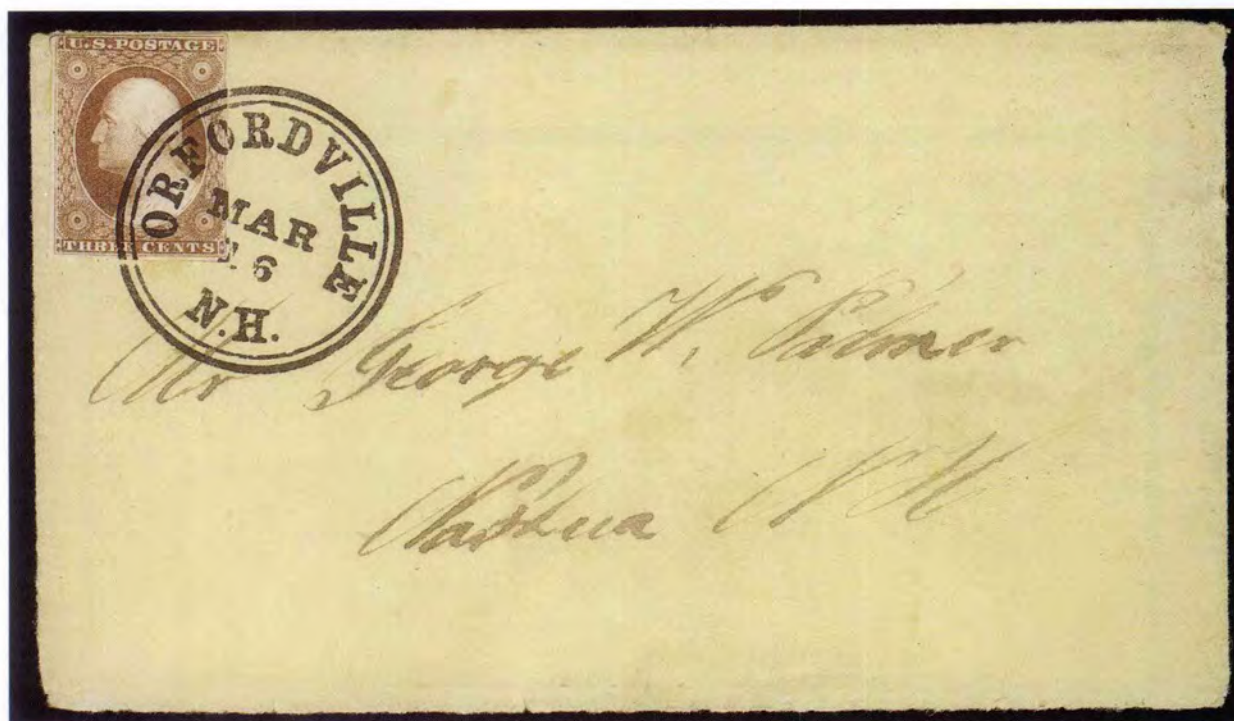 U.S. POSTAGE
THREE CENTS
ORFORDVILLE
MAR
6
N.H.
Mr George W. Palmer
Nashua N H